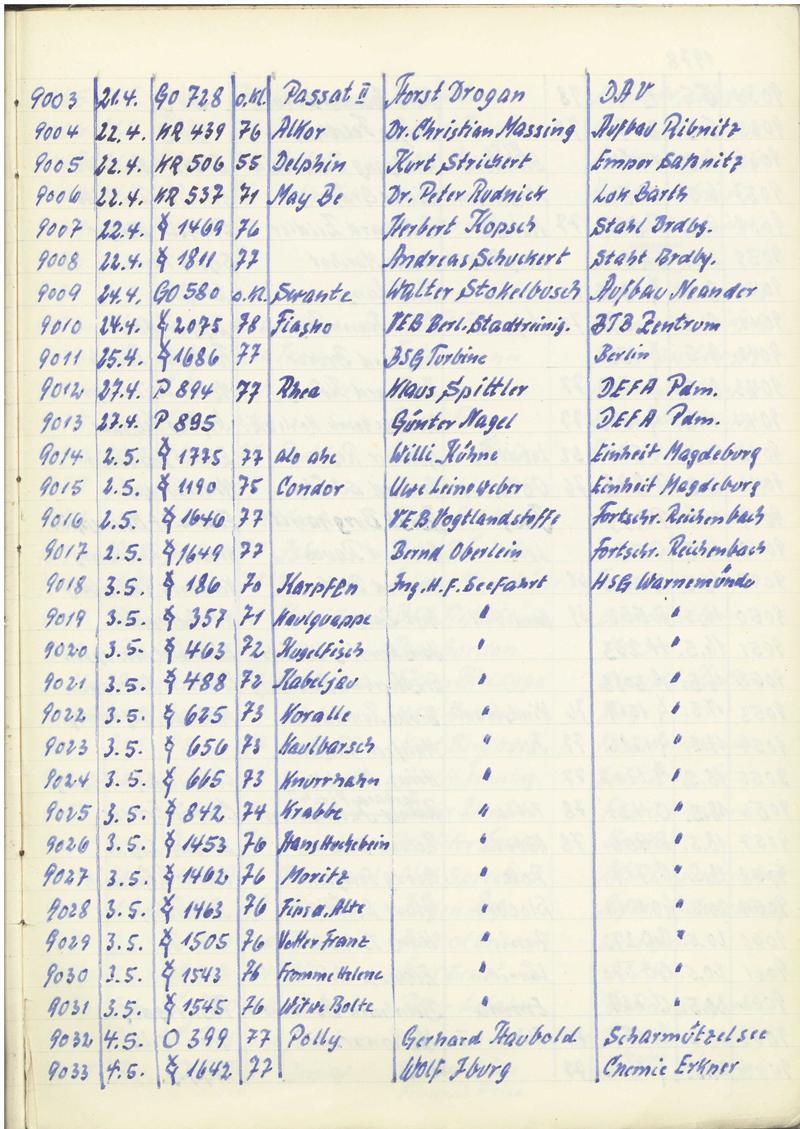 9003 21.4. GO 728 o.Kl. Passat II Horst Drogan DAV
9004 22.4. KR 439 76 Alkor Dr. Christian Massing Aufbau Ribnitz
9005 22.4. KR 506 55 Delphin Kurt Strickert Empor Saßnitz
9006 22.4. KR 537 71 May Be Dr. Peter Rudnick Lok Barth
9007 22.4. 1469 76 Herbert Kopsch Stahl Brdbg.
9008 22.4. 1811 77 Andreas Schuckert Stahl Brdbg.
9009 24.4. GO 580 o.Kl. Swante Walter Stokelbusch Aufbau Neander
9010 24.4. 2075 78 Fiasko VEB Berl. Stadtreinig. BTB Zentrum
9011 25.4. 1686 77 BSG Turbine Berlin
9012 27.4. P 894 77 Rhea Klaus Spittler DEFA Pdm.
9013 27.4. P 895 Günter Nagel DEFA Pdm.
9014 2.5. 1775 77 Willi Kühne Einheit Magdeburg
9015 2.5. 1190 75 Condor Uwe Leineweber Einheit Magdeburg
9016 2.5. 1646 77 VEB Vogtlandstoffe Fortschr. Reichenbach
9017 2.5. 1649 77 Bernd Oberlein Fortschr. Reichenbach
9018 3.5. 186 70 Karpfen Ing. H. F. Seefahrt HSG Warnemünde
9019 3.5. 357 71 Kaulquappe " "
9020 3.5. 463 72 Kugelfisch " "
9021 3.5. 488 72 Kabeljau " "
9022 3.5. 625 73 Koralle " "
9023 3.5. 656 73 Kaulbarsch " "
9024 3.5. 665 73 Knurrhahn " "
9025 3.5. 842 74 Krabbe " "
9026 3.5. 1453 76 Hans Huckebein " "
9027 3.5. 1462 76 Moritz " "
9028 3.5. 1463 76 Fips d. Affe " "
9029 3.5. 1505 76 Vetter Franz " "
9030 3.5. 1543 76 Fromme Helene " "
9031 3.5. 1545 76 Witwe Bolte " "
9032 4.5. O 399 77 Polly Gerhard Haubold Scharmützelsee
9033 4.5. 1642 77 Wolf Iburg Chemie Erkner